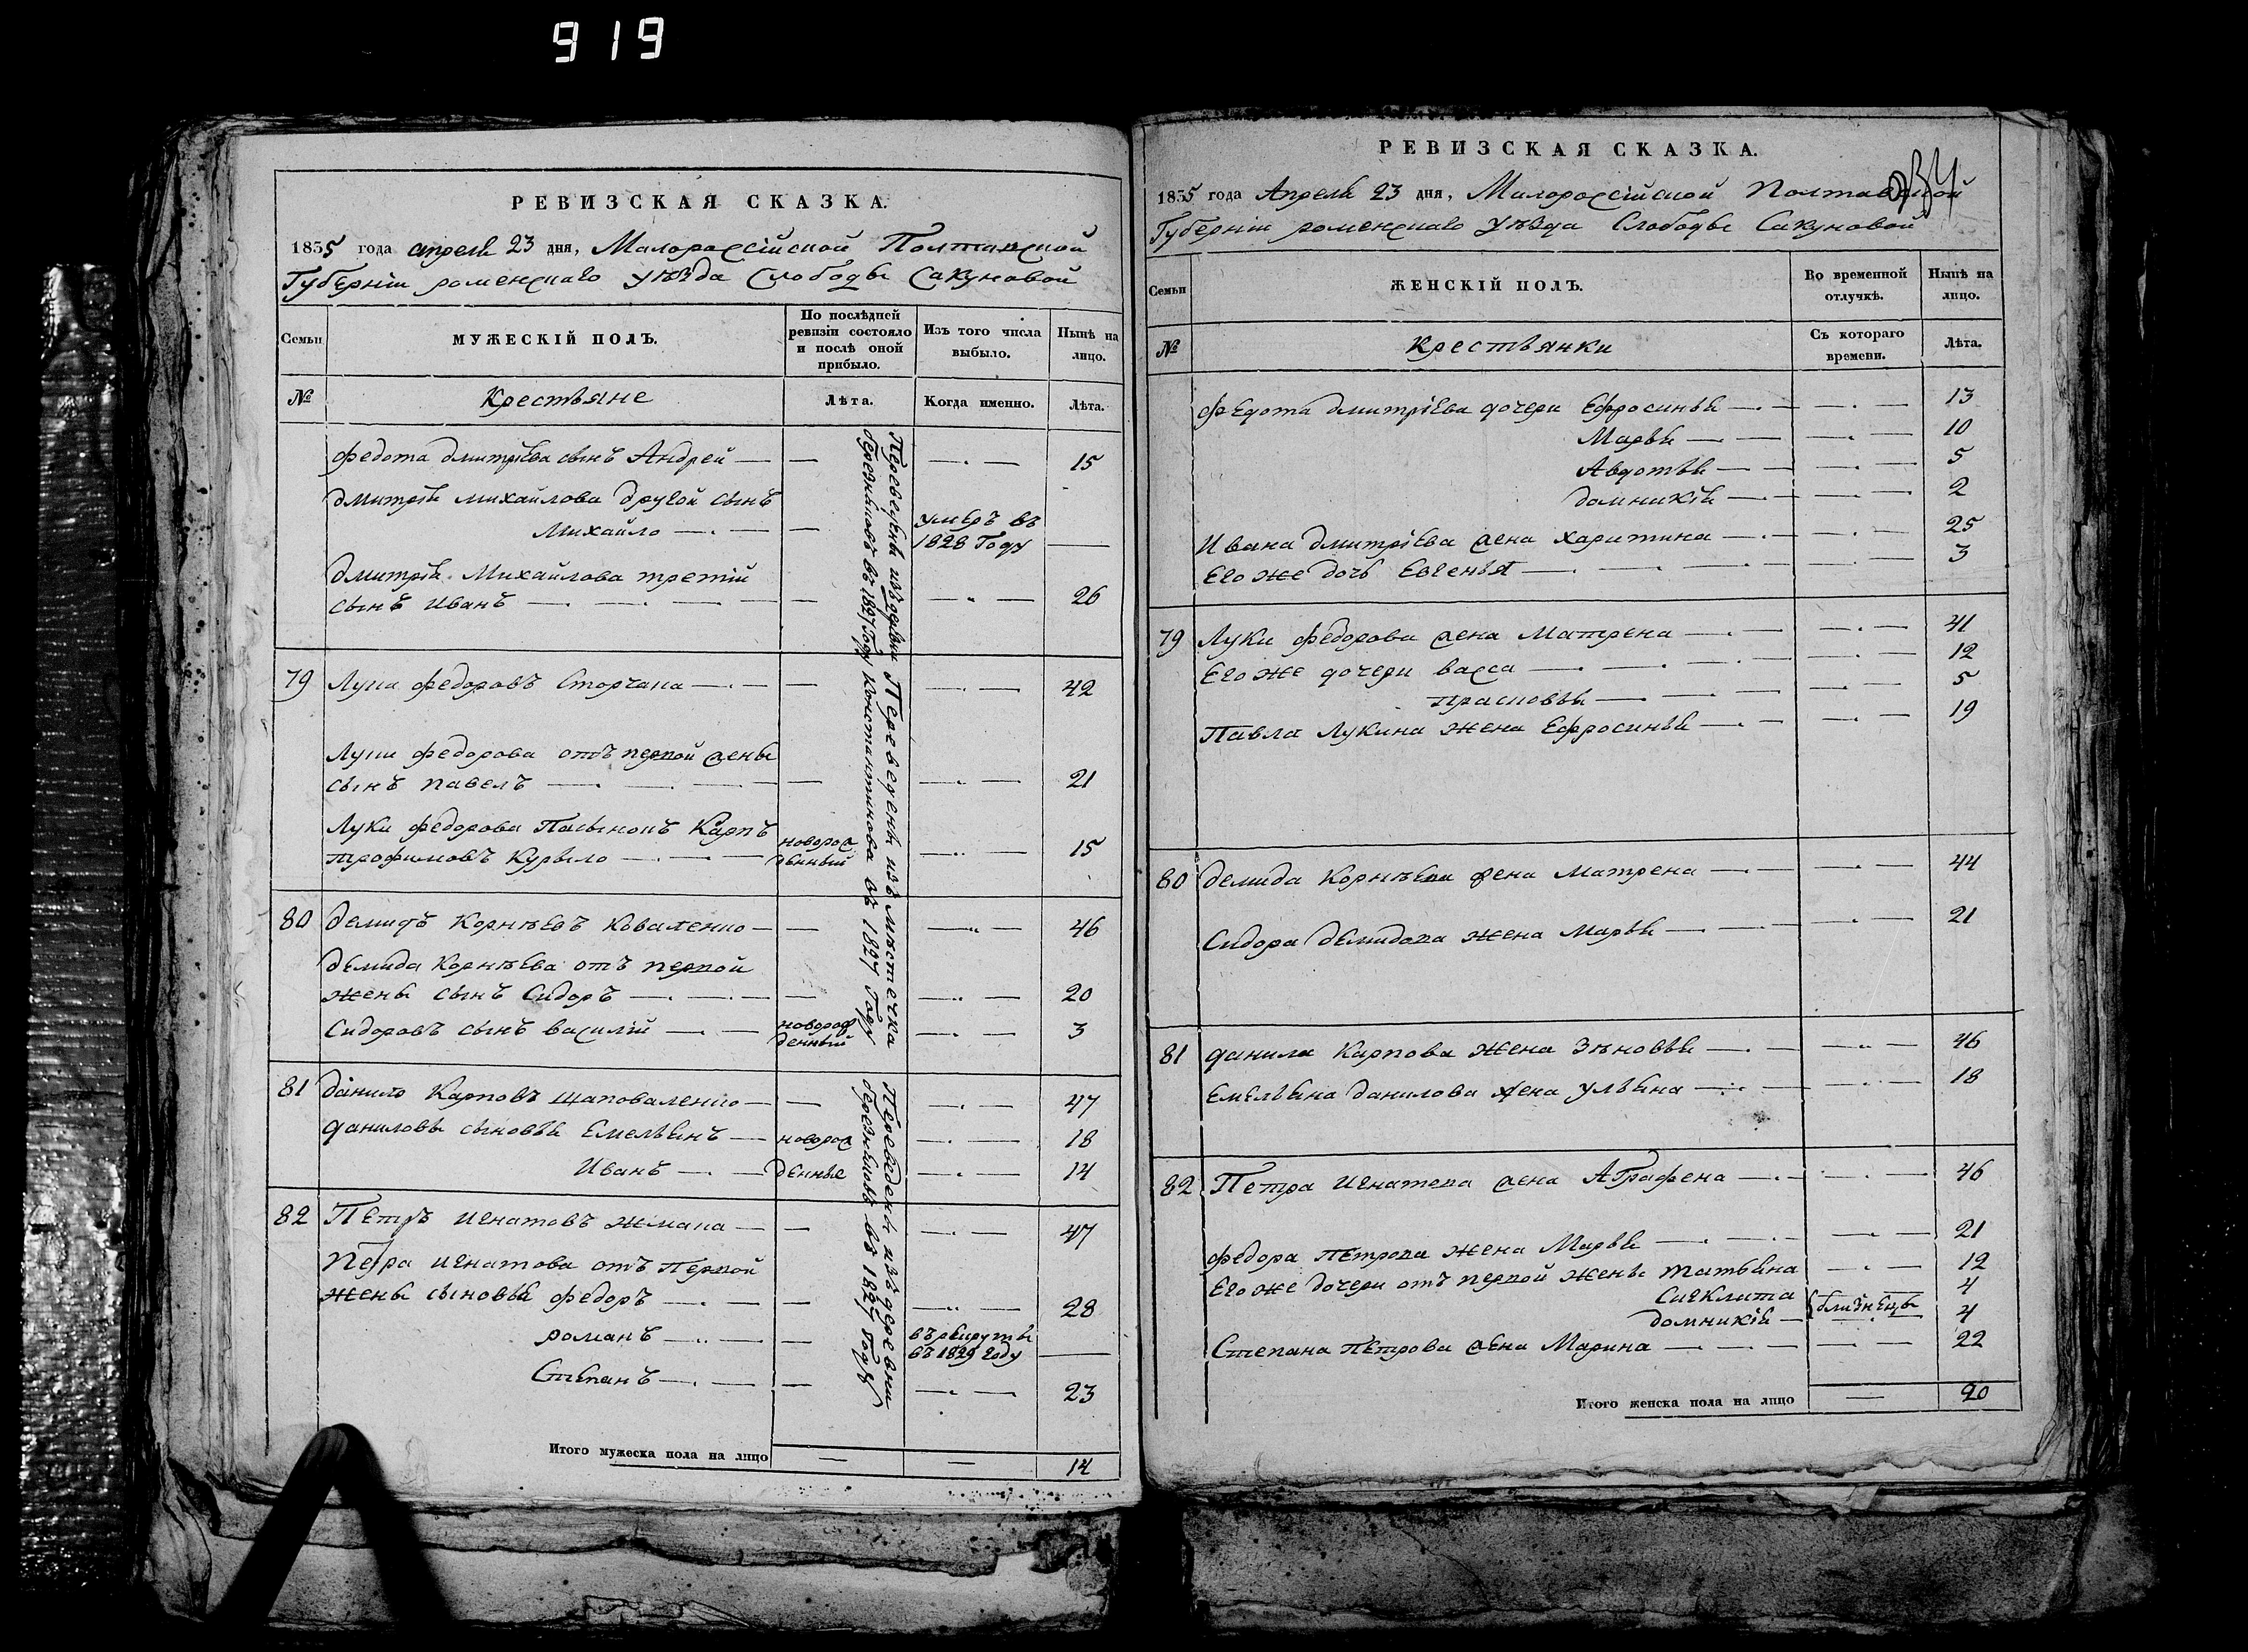 919
РЕВИЗСКАЯ СКАЗКА.
1835 года апреля 23 дня, Малороссійской Полтавской
Губерніи роменскаго уѣзда Слободы Сакуновой
Семьи
МУЖЕСКІЙ ПОЛЪ.
По послѣдней ревизіи состояло и послѣ оной прибыло.
Изъ того числа выбыло.
Нынѣ на лицо.
№
Крестьяне
Лѣта.
Когда именно.
Лѣта.
Федота дмитріева сынъ Андрей — — — 15
дмитрія михайлова другой сынъ
Михайло — — умеръ въ 1828 Году —
дмитрія Михайлова третій
сынъ иванъ — — — 26
79 Луки федоровъ Сторчака — — — 42
Луки федорова отъ первой жены
сынъ павелъ — — — 21
Луки федорова Пасынокъ Карпъ
трофимовъ Курыло — новорожденный — 15
80 демидъ Корнѣевъ Коваленко — — — 46
демида Корнѣева отъ первой
жены сынъ Сидоръ — — — 20
Сидоровъ сынъ василій — новорожденный — 3
81 данило Карповъ Шаповаленко — — — 47
даниловы сыновья Емельянъ — новорож — 18
Иванъ — денные — 14
82 Петръ игнатовъ жмака — — — 47
Петра игнатова отъ Первой
жены сыновья федоръ — — — 28
романъ — — въ рекруты въ 1829 году —
Степанъ — — — 23
Переведены изъ
въ 1827 Году
Переведены изъ мѣстечка
Константинова въ 1827 Году
Переведены изъ деревни
въ 1827 Году
Итого мужеска пола на лицо — — 14
РЕВИЗСКАЯ СКАЗКА.
1835 года Апреля 23 дня, Малороссійской Полтавской
Губерніи роменскаго уѣзда Слободы Сакуновой
Семьи
ЖЕНСКІЙ ПОЛЪ.
Во временной отлучкѣ.
Нынѣ на лицо.
№
Крестьянки
Съ котораго времени.
Лѣта.
Федота дмитріева дочери Ефросинья — — 13
Марья — — 10
Авдотья — — 5
домникія — — 2
Ивана дмитріева жена харитина — — 25
Его же дочь Евгенья — — 3
79 Луки федорова жена Матрена — — 41
Его же дочери васса — — 12
прасковья — — 5
Павла Лукина жена Ефросинья — — 19
80 демида Корнѣева жена Матрена — — 44
Сидора демидова жена Марья — — 21
81 данила Карпова жена Зѣновья — — 46
Емельяна данилова жена ульяна — — 18
82 Петра игнатева жена Аграфена — — 46
федора Петрова жена Марья — — 21
Его же дочери отъ первой жены татьяна — — 12
Сигклита 4
домникія — близнецы 4
Степана Петрова жена Марина — — 22
Итого женска пола на лицо — 20